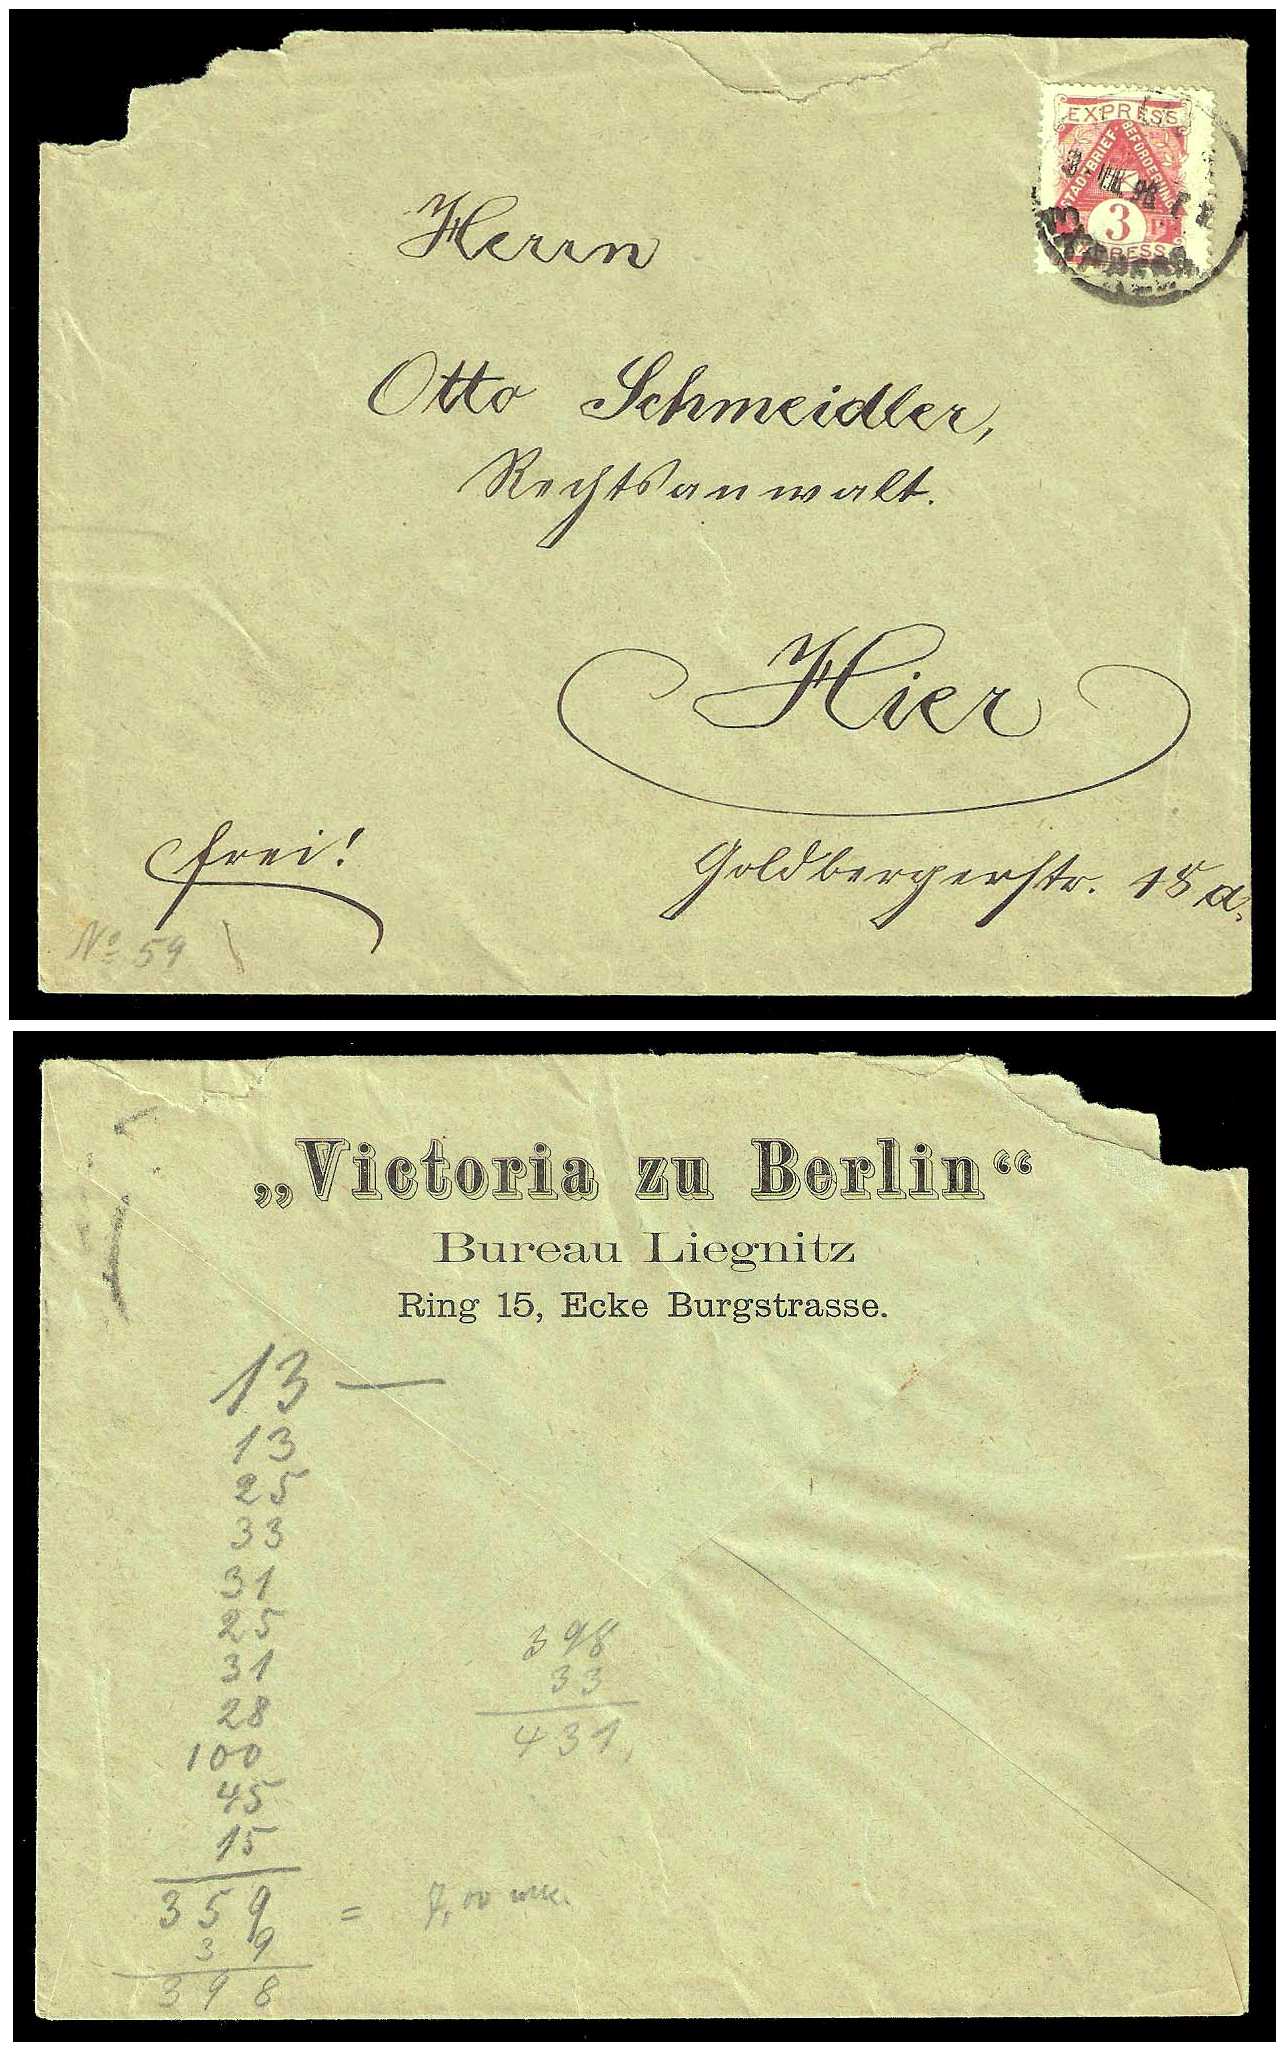 EXPRESS
STADTBRIEF-BEFÖRDERUNG
3
EXPRESS
Herrn
Otto Schmeidler,
Rechtsanwalt.
Hier
frei!
Goldbergerstr. 18 a.
No 59
„Victoria zu Berlin“
Bureau Liegnitz
Ring 15, Ecke Burgstrasse.
13 —
13
25
33
31
25
31
28
100
45
15
359 =
39
398
398
33
431,